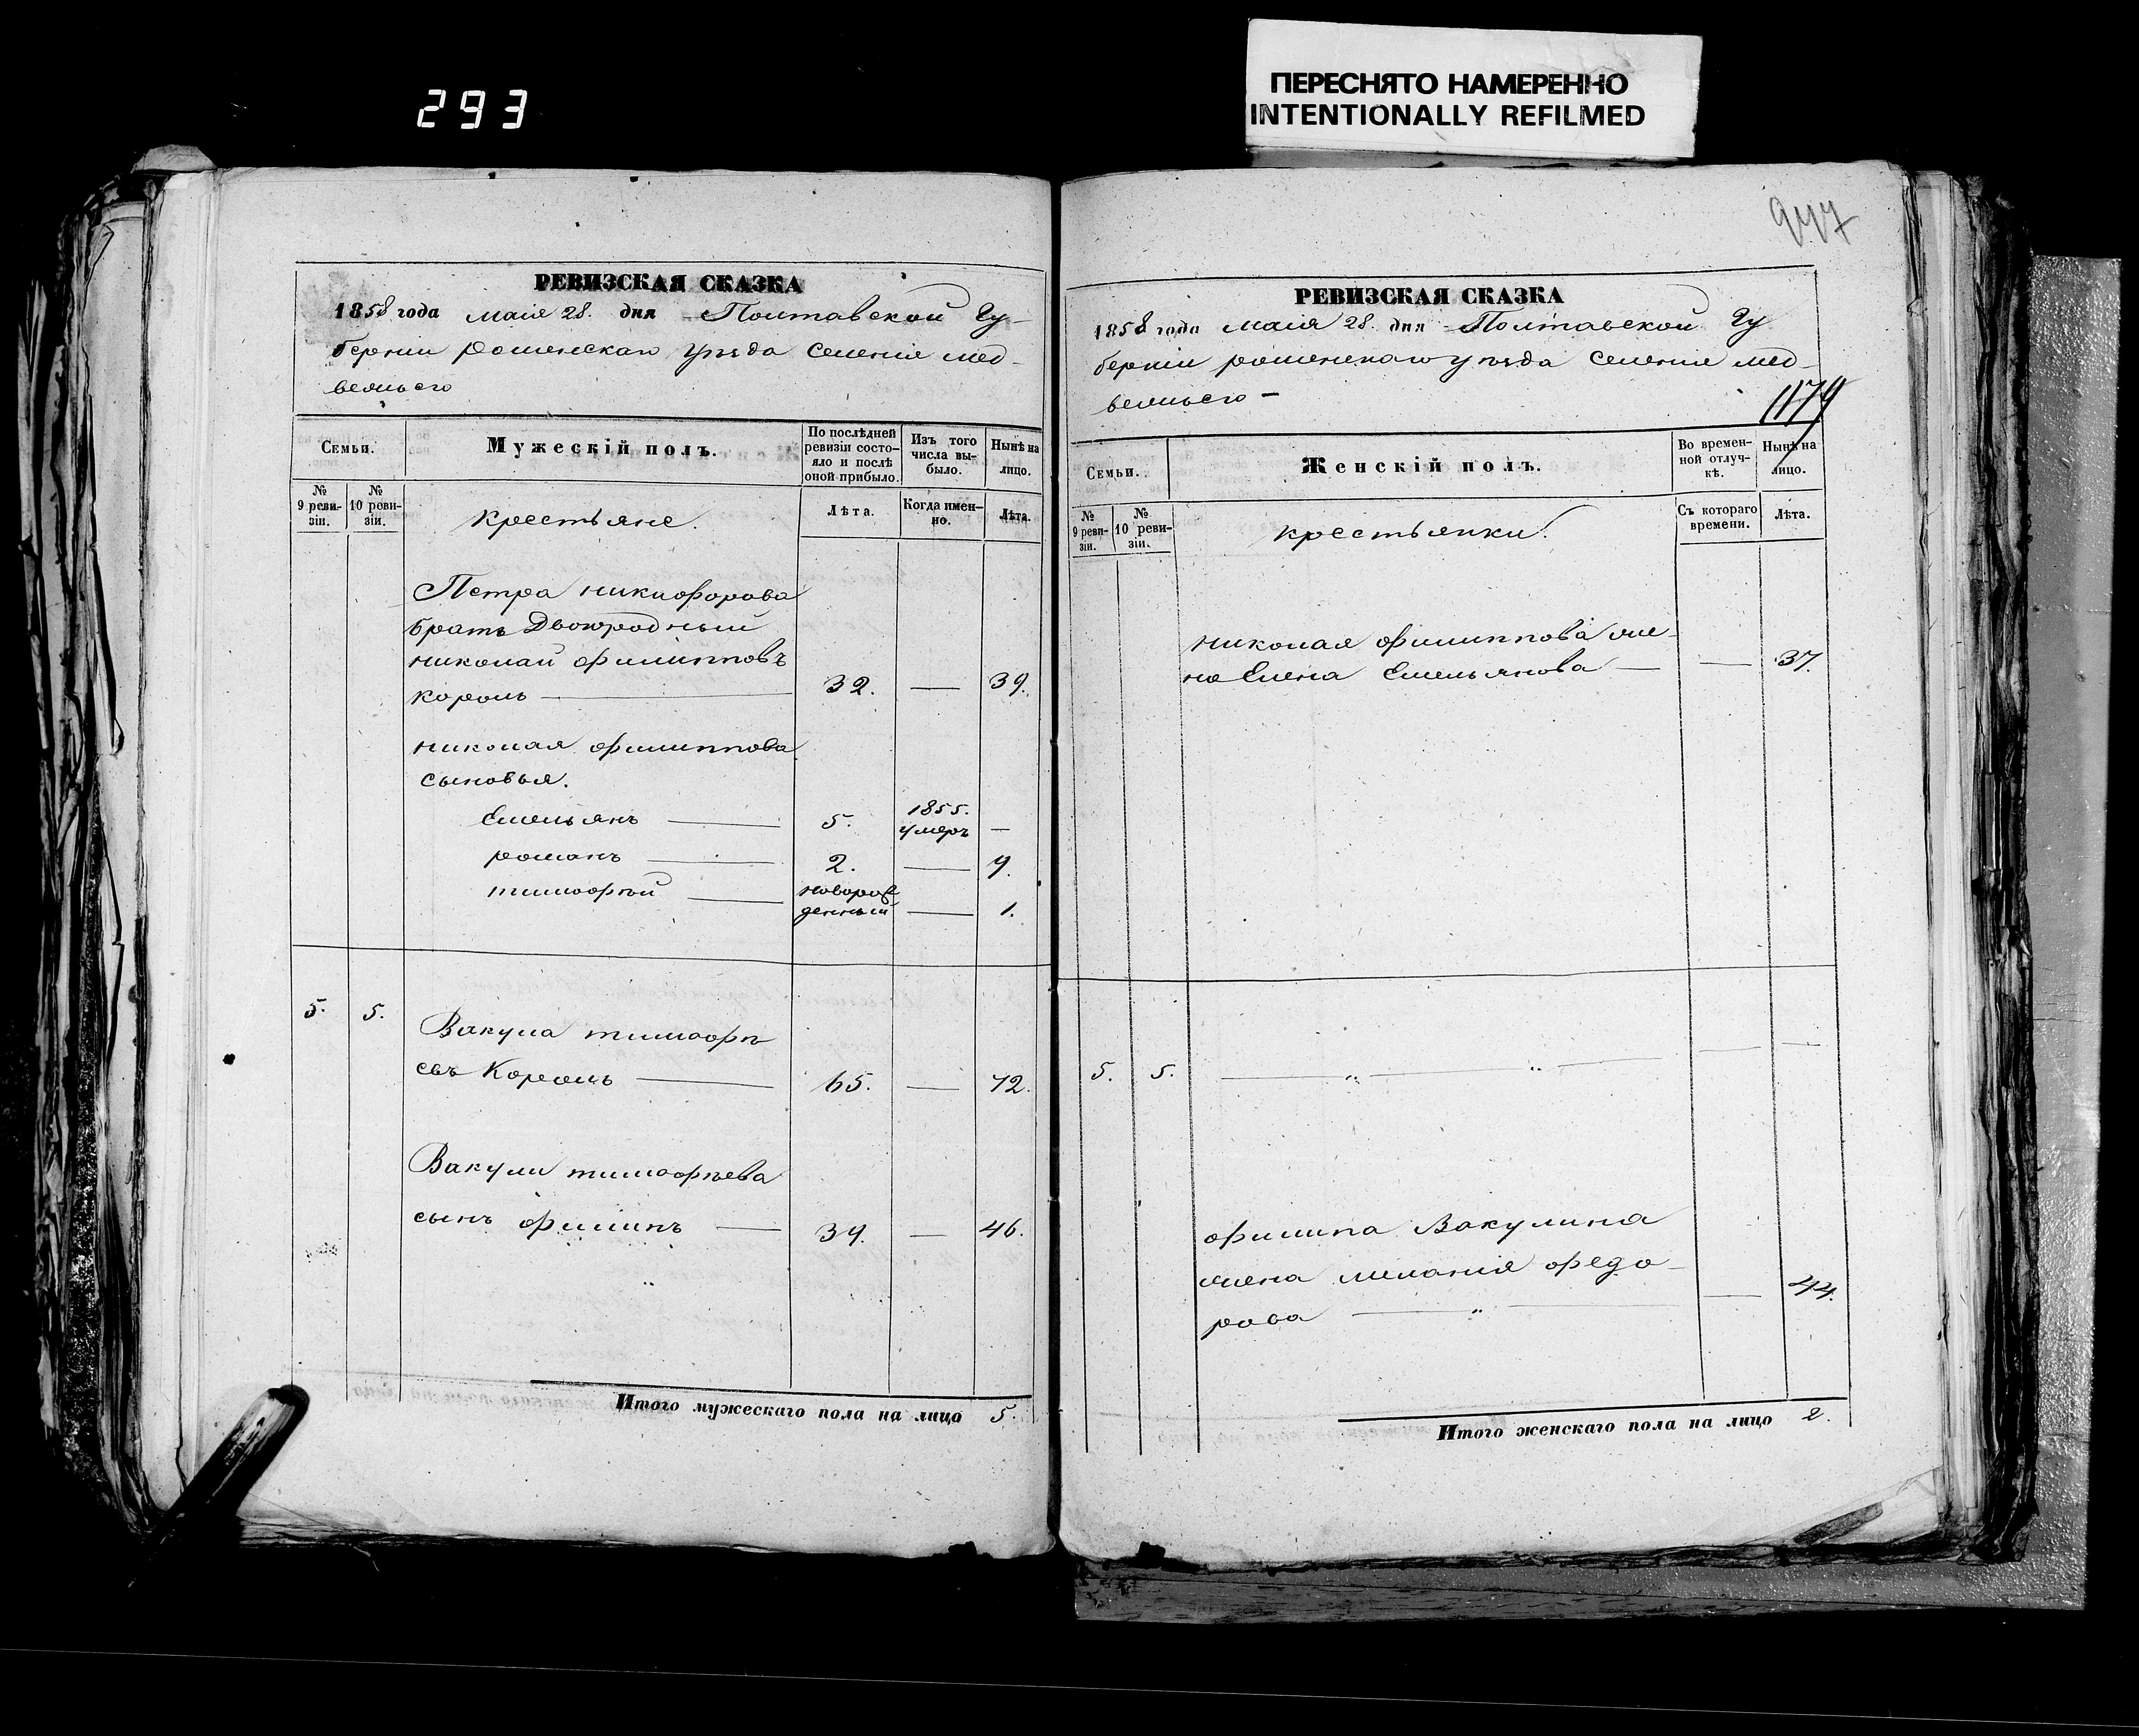 293
ПЕРЕСНЯТО НАМЕРЕННО
INTENTIONALLY REFILMED
РЕВИЗСКАЯ СКАЗКА
1858 года маія 28. дня Полтавской Гу-
берніи роменскаго уѣзда Селенія мед-
вежьего
Семьи.
Мужескій полъ.
По послѣдней ревизіи состо-яло и послѣ оной прибыло.
Изъ того числа вы-было.
Нынѣ на лицо.
№ 9 реви-зіи.
№ 10 реви-зіи.
крестьяне.
Лѣта.
Когда имен-но.
Лѣта.
Петра никифорова
братъ Двоюродный
николай филипповъ
король — 32. — 39.
николая филиппова
сыновья.
Емельянъ — 5. 1855. умеръ —
романъ — 2. — 9.
тимофѣй — новорож-денный — 1.
5. 5. Вакула тимофѣ
евъ Король — 65. — 72.
Вакули тимофѣева
сынъ филипъ — 39. — 46.
Итого мужескаго пола на лицо 5.
947
РЕВИЗСКАЯ СКАЗКА
1858 года маія 28. дня Полтавской Гу
берніи роменскаго уѣзда Селенія мед-
вежьего —
1179
Семьи.
Женскій полъ.
Во времен-ной отлуч-кѣ.
Нынѣ на лицо.
№ 9 реви-зіи.
№ 10 реви-зіи.
крестьянки.
Съ котораго времени.
Лѣта.
николая филиппова же-
на Елена Емельянова — — 37.
5. 5. — „ — „ — — —
филипа Вакулина
жена меланія федо-
рова — „ — — 44.
Итого женскаго пола на лицо 2.